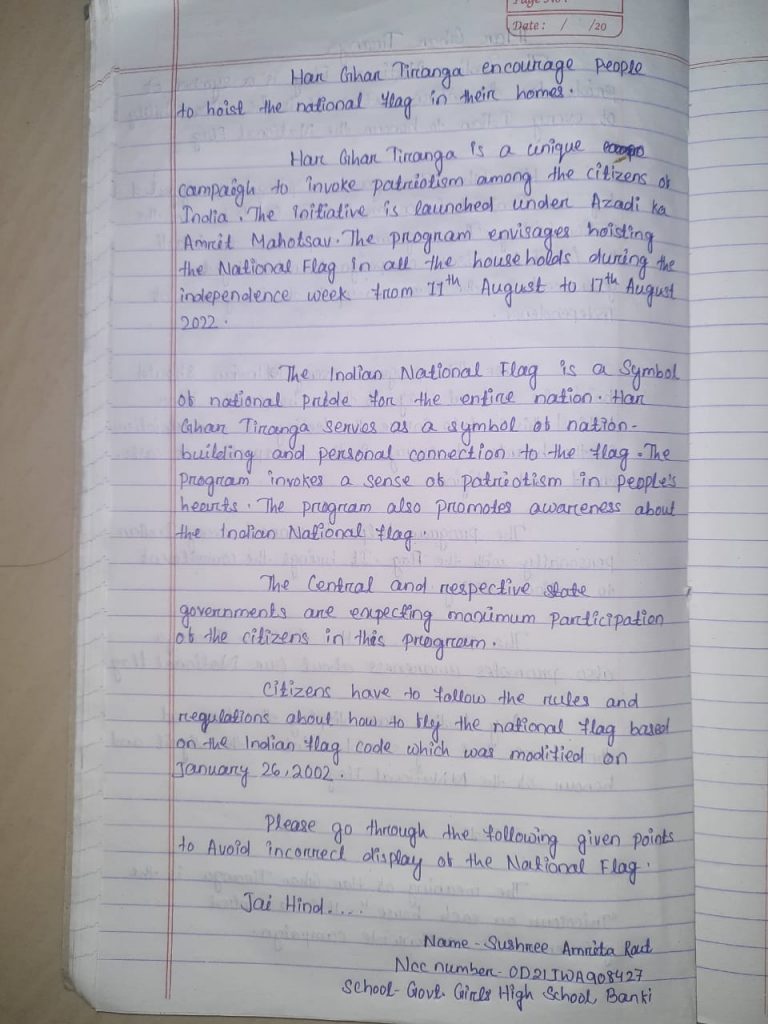 Page No :
Date :    /    /20
Har Ghar Tiranga encourage people
to hoist the national flag in their homes.
Har Ghar Tiranga is a unique
campaigh to invoke patriotism among the citizens of
India. The initiative is launched under Azadi ka
Amrit Mahotsav. The program envisages hoisting
the National Flag in all the households during the
independence week from 11th August to 17th August
2022.
The Indian National Flag is a Symbol
of national pride for the entire nation. Har
Ghar Tiranga serves as a symbol of nation-
building and personal connection to the flag. The
program invokes a sense of patriotism in people's
hearts. The program also promotes awareness about
the Indian National flag.
The Central and respective state
governments are expecting maximum participation
of the citizens in this program.
Citizens have to follow the rules and
regulations about how to fly the national flag based
on the Indian flag code which was modified on
January 26, 2002.
Please go through the following given points
to Avoid incorrect display of the National Flag.
Jai Hind....
Name - Sushree Amrita Rout
Ncc number - OD21JWA908427
School - Govt. Girls High School, Banki